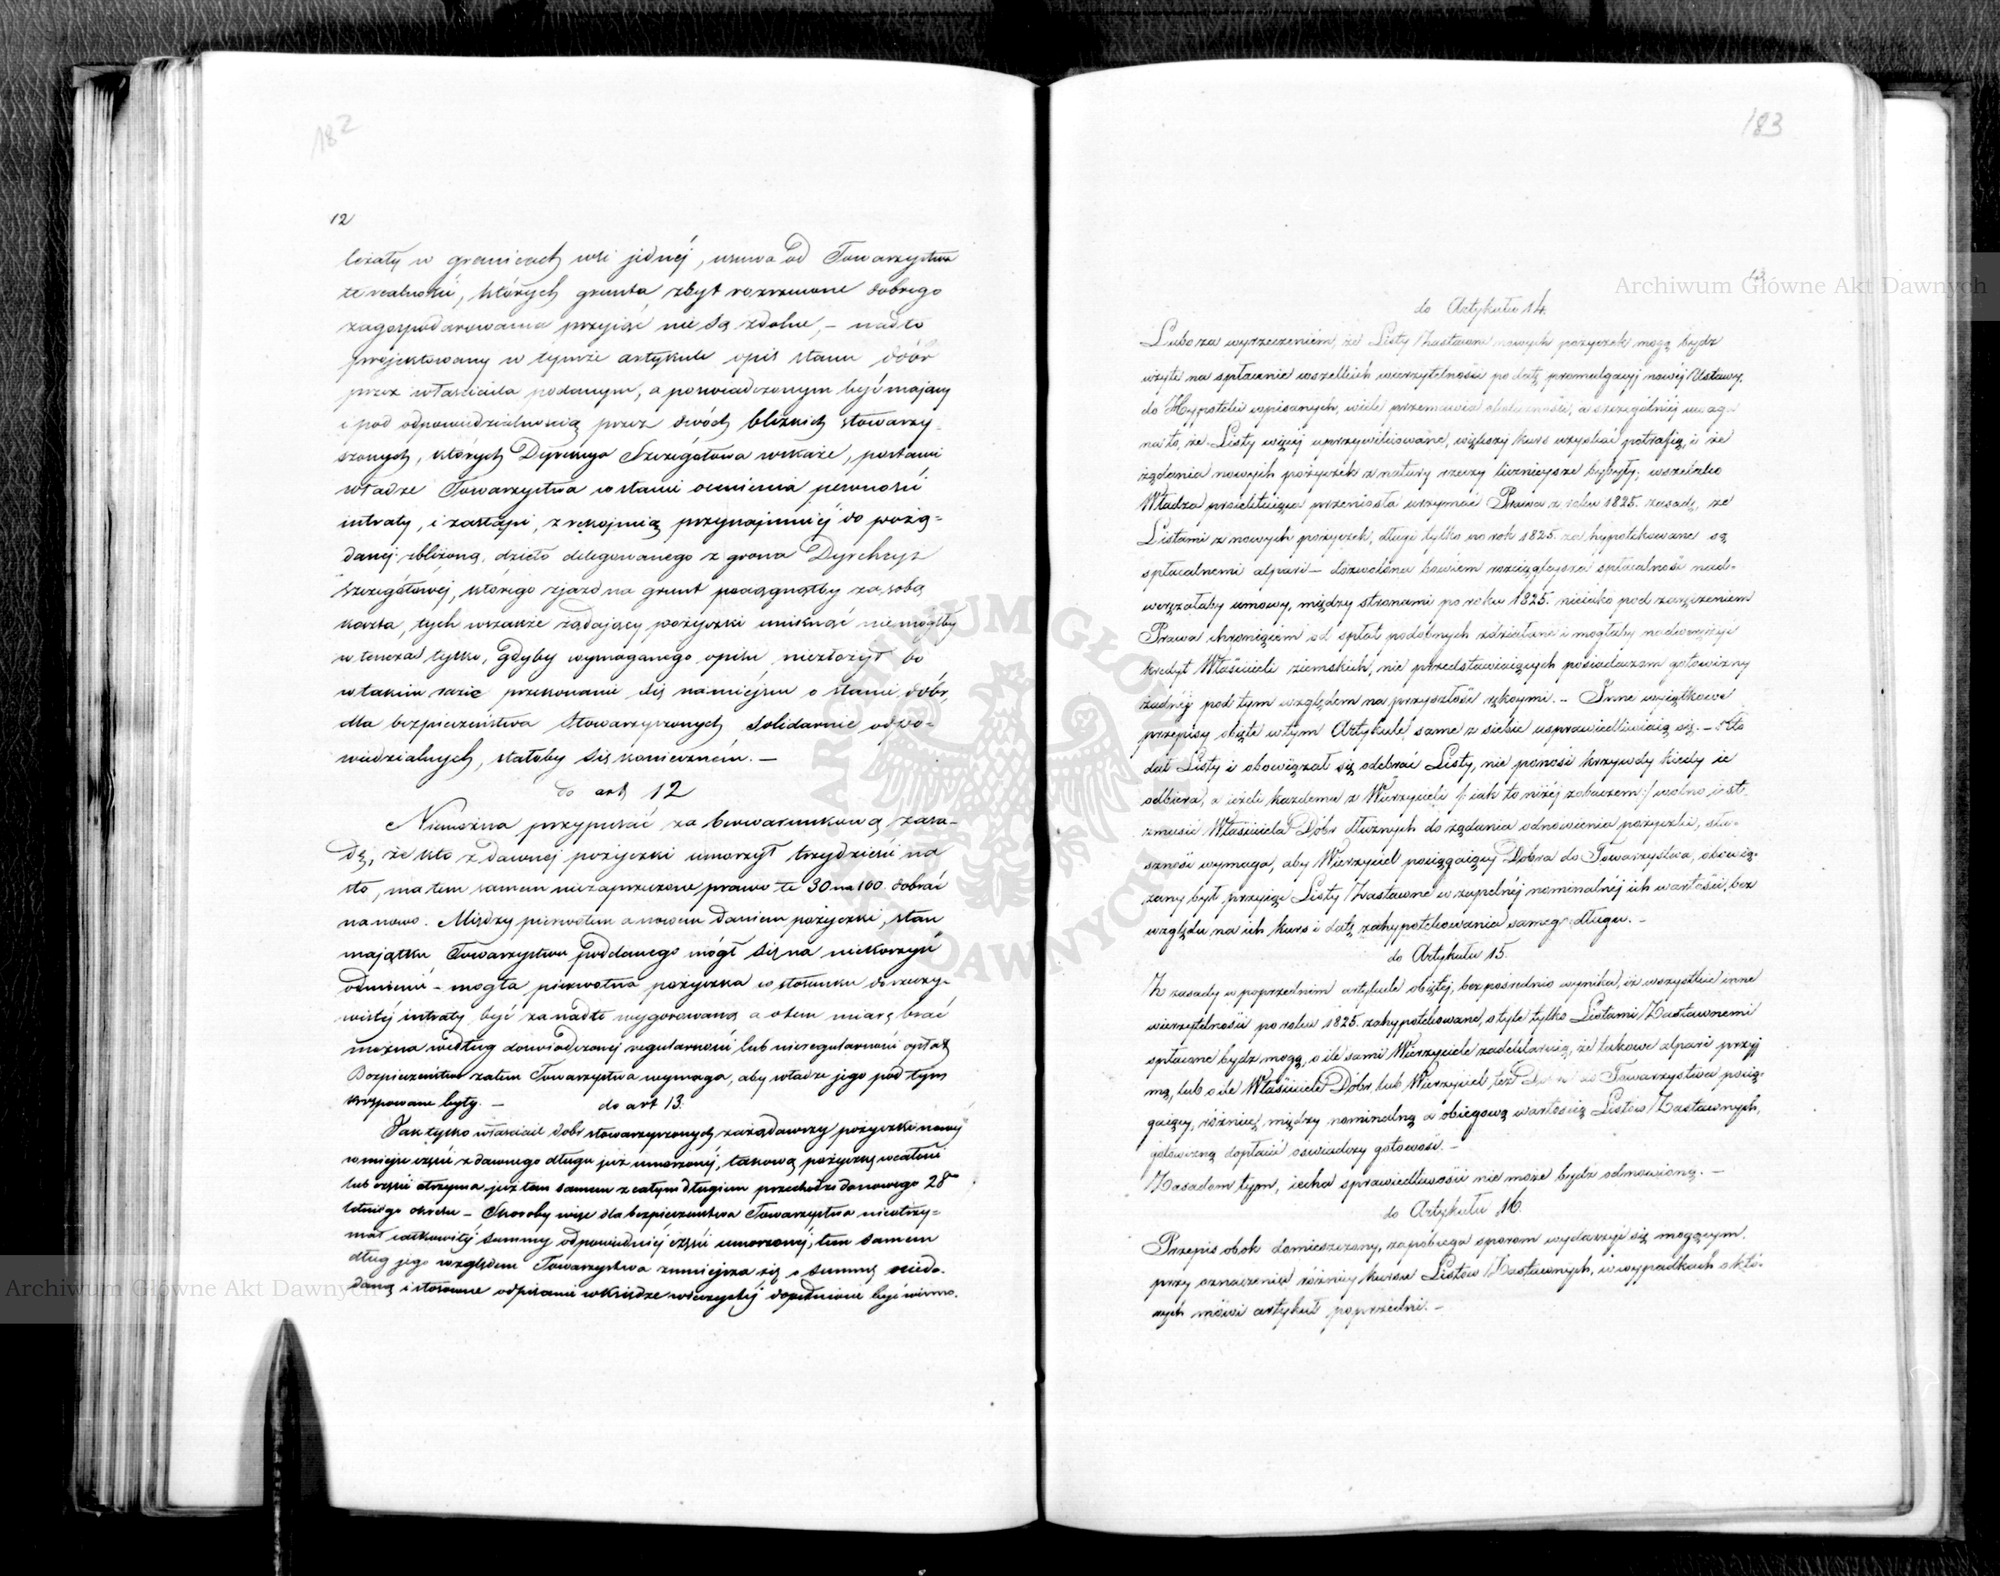 182
12
leżały w granicach wsi jednéj, usuwa od Towarzystwa
te realności, których grunta zbyt rozrzucone dobrego
zagospodarowania przyjąć nie są zdolne, – nadto
projektowany w tymże artykule opis stanu dóbr
przez właściciela podanym, a poświadczonym być mający
i pod odpowiedzialnością przez dwóch bliznich stowarzy-
szonych, których Dyrekcya Szczegółowa wskaże, postawi
władze Towarzystwa w stanie ocenienia pewności
intraty, i zastąpi, z rękojmią przynajmniéj do pożą-
danéj zbliżoną, dzieło delegowanego z grona Dyrekcyi
szczegółowéj, którego zjazd na grunt pociągnąłby za sobą
koszta, tych wszakże żądający pożyczki uniknąć niemógłby
w tenczas tylko, gdyby wymaganego opisu niezłożył bo
w takim razie przekonanie się na miejscu o stanie dóbr,
dla bezpieczeństwa Stowarzyszonych solidarnie odpo-
wiedzialnych, stałoby się koniecznem. –
do art 12
Niemożna przypuścić za bezwarunkową zasa-
dę, że kto z dawnej pożyczki umorzył trzydzieści na
sto, ma tem samem niezaprzeczone prawo te 30 na 100 dobrać
na nowo. Między pierwotem a nowem daniem pożyczki, stan
majątku Towarzystwu poddanego mógł się na niekorzyść
odmienić – mogła pierwotna pożyczka w stosunku do rzeczy-
wistéj intraty być za nadto wygórowaną a o tem miarę brać
można według doświadczonéj regularności lub nieregularności opłat
Bezpieczeństwo zatem Towarzystwa wymaga, aby władze jego pod tym
skrępowane były. –
do art 13.
Jak tylko właściciel dobr stowarzyszonych zażądawszy pożyczki nowéj
w miejsce części z dawnego długu już umorzonéj, takową pożyczkę w całości
lub części otrzyma już tem samem z całym długiem przechodzi do nowego 28mo
letniego okresu – Skoroby więc dla bezpieczeństwa Towarzystwa nieotrzy-
mał całkowitéj summy odpowiedniéj części umorzonéj, tem samem
dług jego względem Towarzystwa zmniejsza się o summę niedo-
daną i stosowne odpisanie w księdze wieczystéj dopełnione być winno.
183
13
do Artykułu 14.
Lubo za wyrzeczeniem, że Listy Zastawne nowych pożyczek mogą bydź
użyte na spłacenie wszelkich wierzytelności po datę promulgacyj nowéj Ustawy,
do Hypoteki wpisanych, wiele przemawia okoliczności, a szczególniéj uwaga
na to, że Listy więcéj uprzywilejowane, większy kurs uzyskać potrafią, i że
żądania nowych pożyczek z natury rzeczy liczniejsze byłyby; wszelako
Władza przełożona przeniosła utrzymać Prawa z roku 1825. zasadę, że
Listami z nowych pożyczek, długi tylko po rok 1825. zahypotekowane są
spłacalnemi alpari – dozwolona bowiem rozciąglejsza spłacalność nad-
weręzałaby umowy, między stronami po roku 1825. niejako pod zaręczeniem
Prawa chroniącém od spłat podobnych zdziałane i mogłaby nadwerężyć
kredyt Właścicieli ziemskich, nie przedstawiaiących posiadaczom gotowizny
żadnéj pod tym względem na przyszłość rękoymi. – Inne wyjątkowe
przepisy objęte w tym Artykule, same z siebie usprawiedliwiaią się. – Kto
dał Listy i obowiązał się odebrać Listy, nie ponosi krzywdy kiedy je
odbiera, a jeżeli każdemu z Wierzycieli /: iak to niżéj zobaczem :/ wolno jest
zmusić Właściciela Dóbr dłużnych do żądania odnowienia pożyczki, słu-
szność wymaga, aby Wierzyciel pociągaiący Dobra do Towarzystwa, obowią-
zany był przyiąć Listy Zastawne w zupełnéj nominalnéj ich wartości, bez
względu na ich kurs i datę zahypotekowania samego długu. –
do Artykułu 15.
Z zasady w poprzednim artykule objętéj, bezpośrednio wynika, iż wszystkie inne
wierzytelności po roku 1825. zahypotekowane, o tyle tylko Listami Zastawnemi
spłacane bydź mogą, o ile sami Wierzyciele zadeklarują, że takowe alpari przyj
mą, lub o ile Właściciele Dóbr, lub Wierzyciel, też Dobra do Towarzystwa pocią-
gaiący, różnicę między nominalną a obiegową wartością Listów Zastawnych,
gotowizną dopłacić oświadczy gotowość. –
Zasadom tym, cecha sprawiedliwości nie może bydź odmówioną. –
do Artykułu 16.
Przepis obok domieszczony, zapobiega sporom wydarzyć się mogącym.
przy oznaczeniu różnicy kursu Listów Zastawnych, w wypadkach o któ-
rych mówi artykuł poprzedni. –
Archiwum Główne Akt Dawnych
Archiwum Główne Akt Dawnych
ARCHIWUM GŁÓWNE AKT DAWNYCH